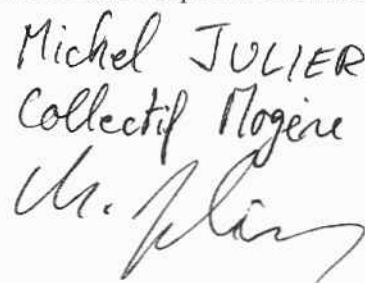 Michel JULIER
Collectif Mogère
M. Julier